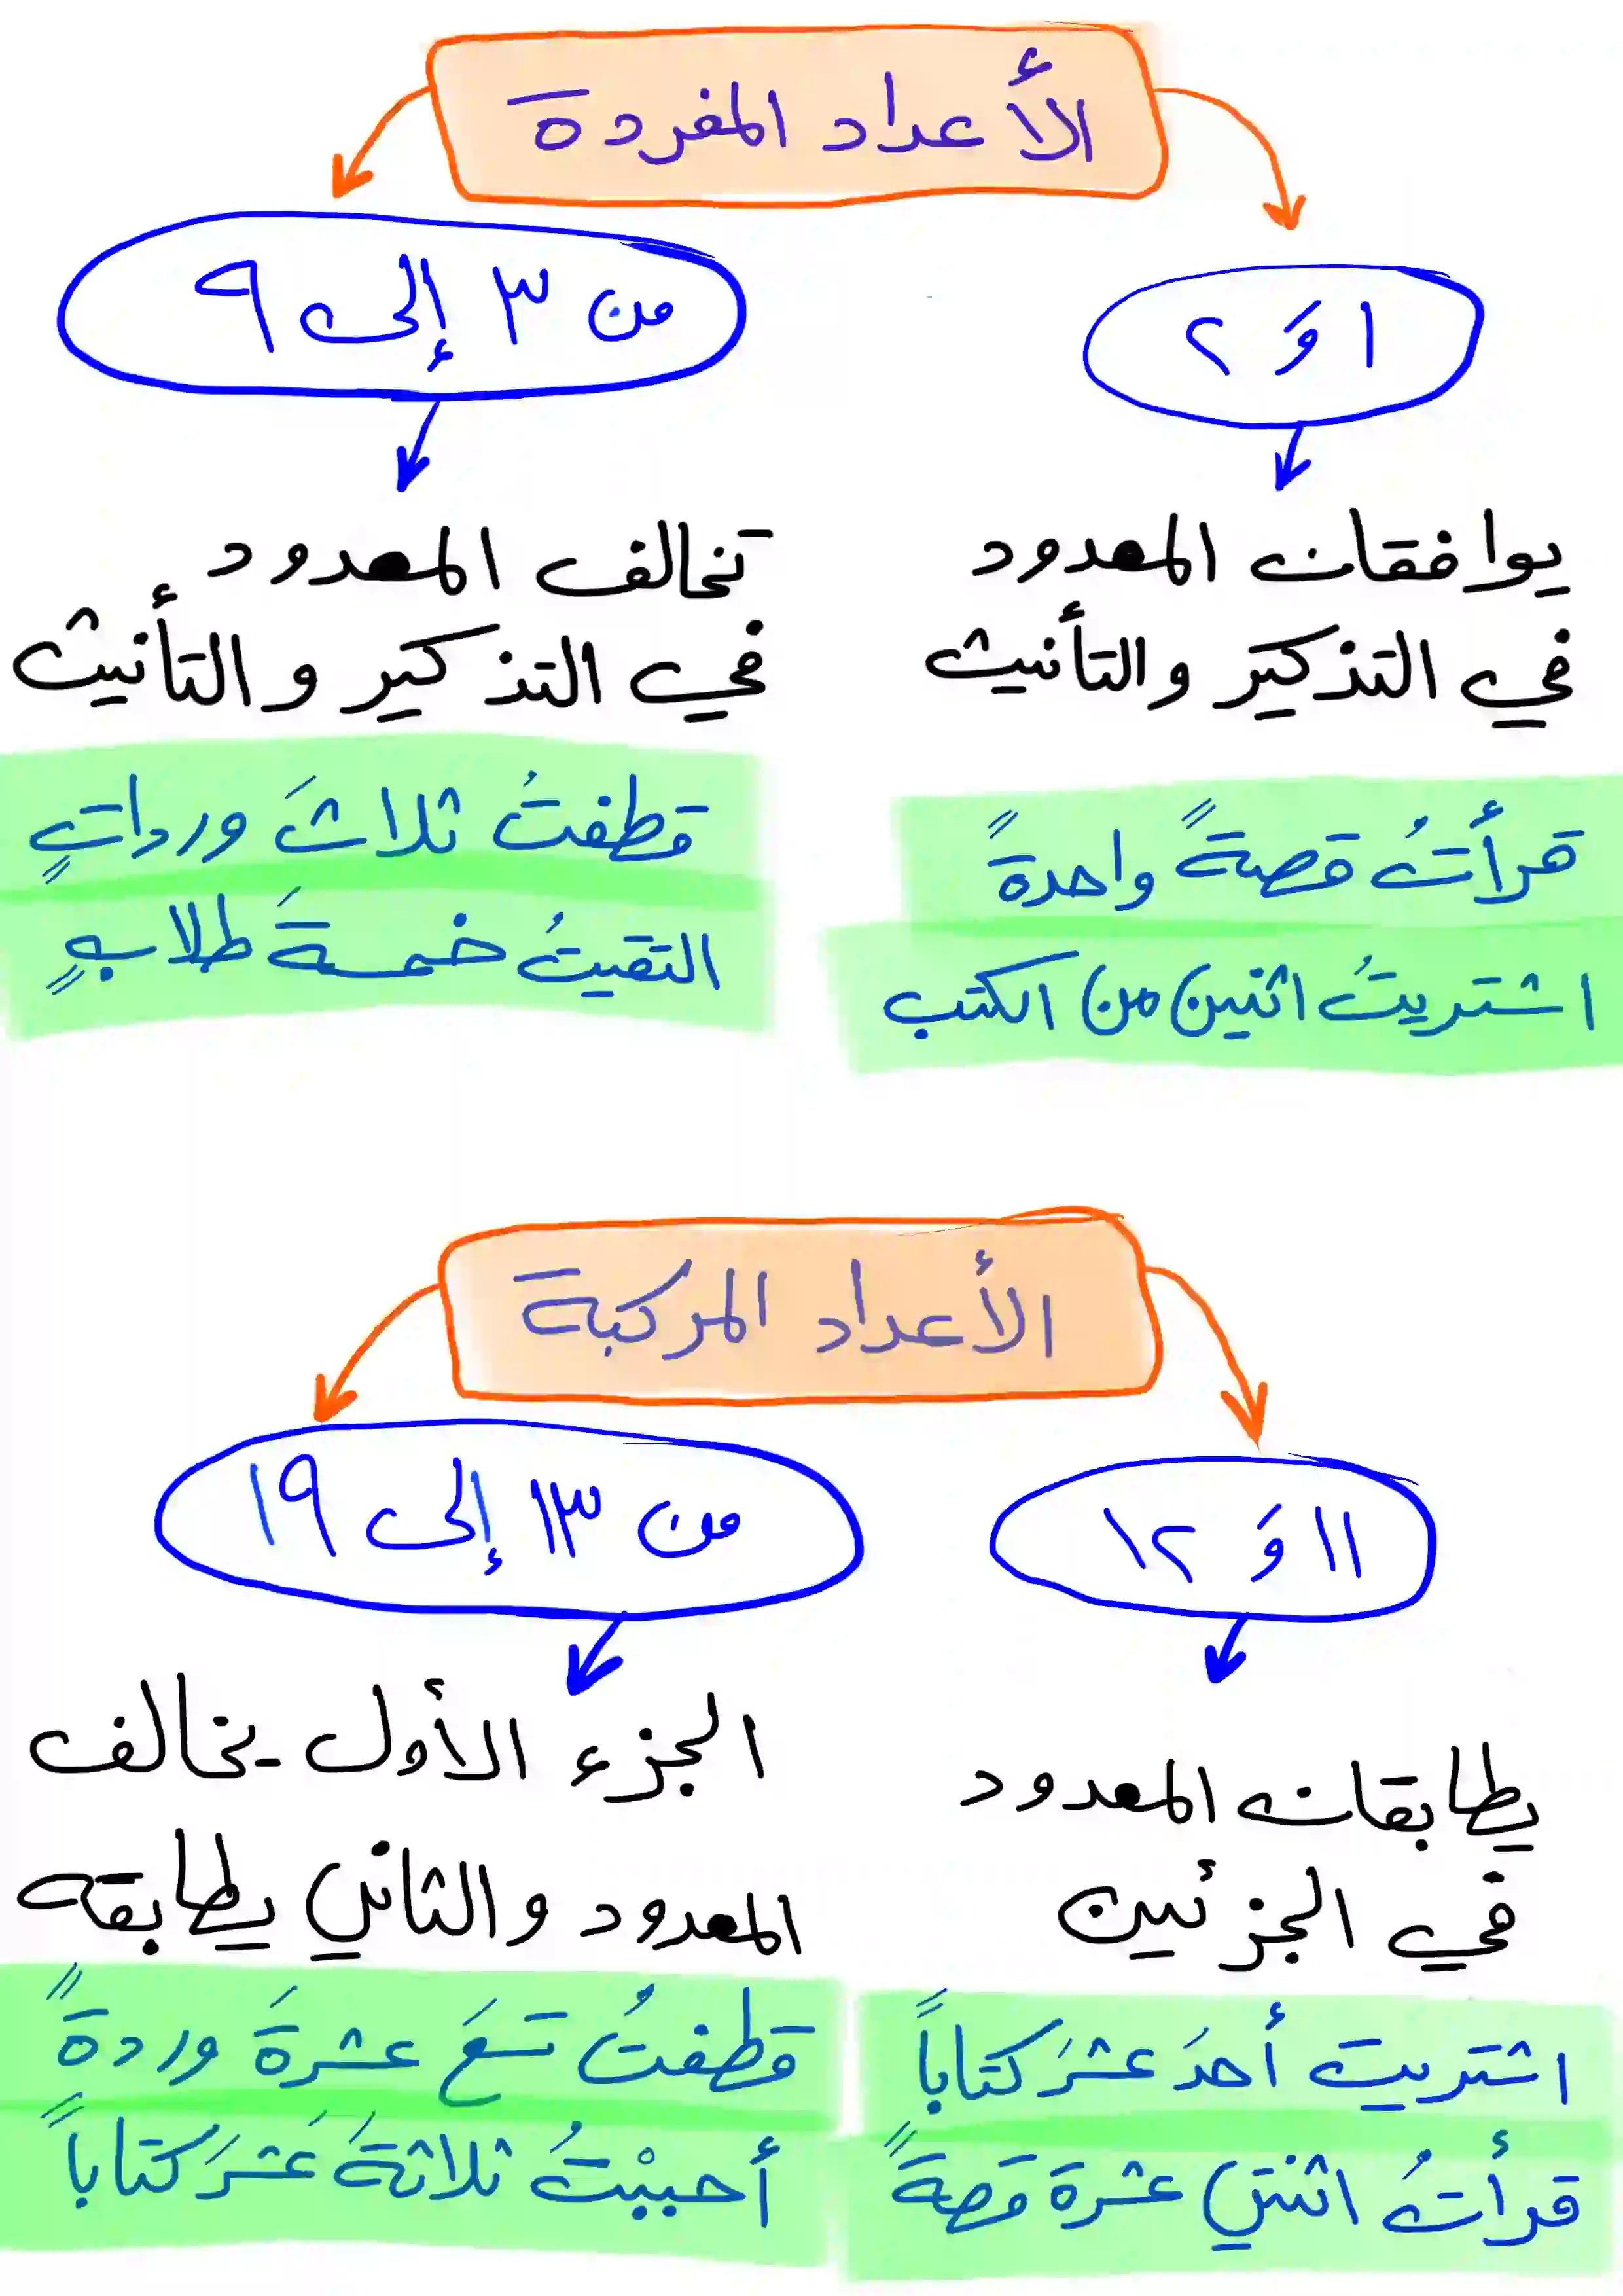 الأعداد المفردة
١ وَ ٢
يوافقان المعدود
في التذكير والتأنيث
قرأتُ قصةً واحدةً
اشتريتُ اثنين من الكتب
من ٣ إلى ٩
تخالف المعدود
في التذكير والتأنيث
قطفتُ ثلاثَ ورداتٍ
التقيتُ خمسةَ طلابٍ
الأعداد المركبة
١١ وَ ١٢
يطابقان المعدود
في الجزئين
اشتريت أحدَ عشرَ كتاباً
قرأتُ اثنتي عشرة قصةً
من ١٣ إلى ١٩
الجزء الأول يخالف
المعدود والثاني يطابقه
قطفتُ تسعَ عشرةَ وردةً
أحببْتُ ثلاثةَ عَشرَ كتاباً